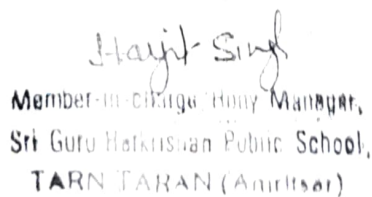 Harjit Singh
Member-in-charge/Hony Manager,
Sri Guru Harkrishan Public School,
TARN TARAN (Amritsar)